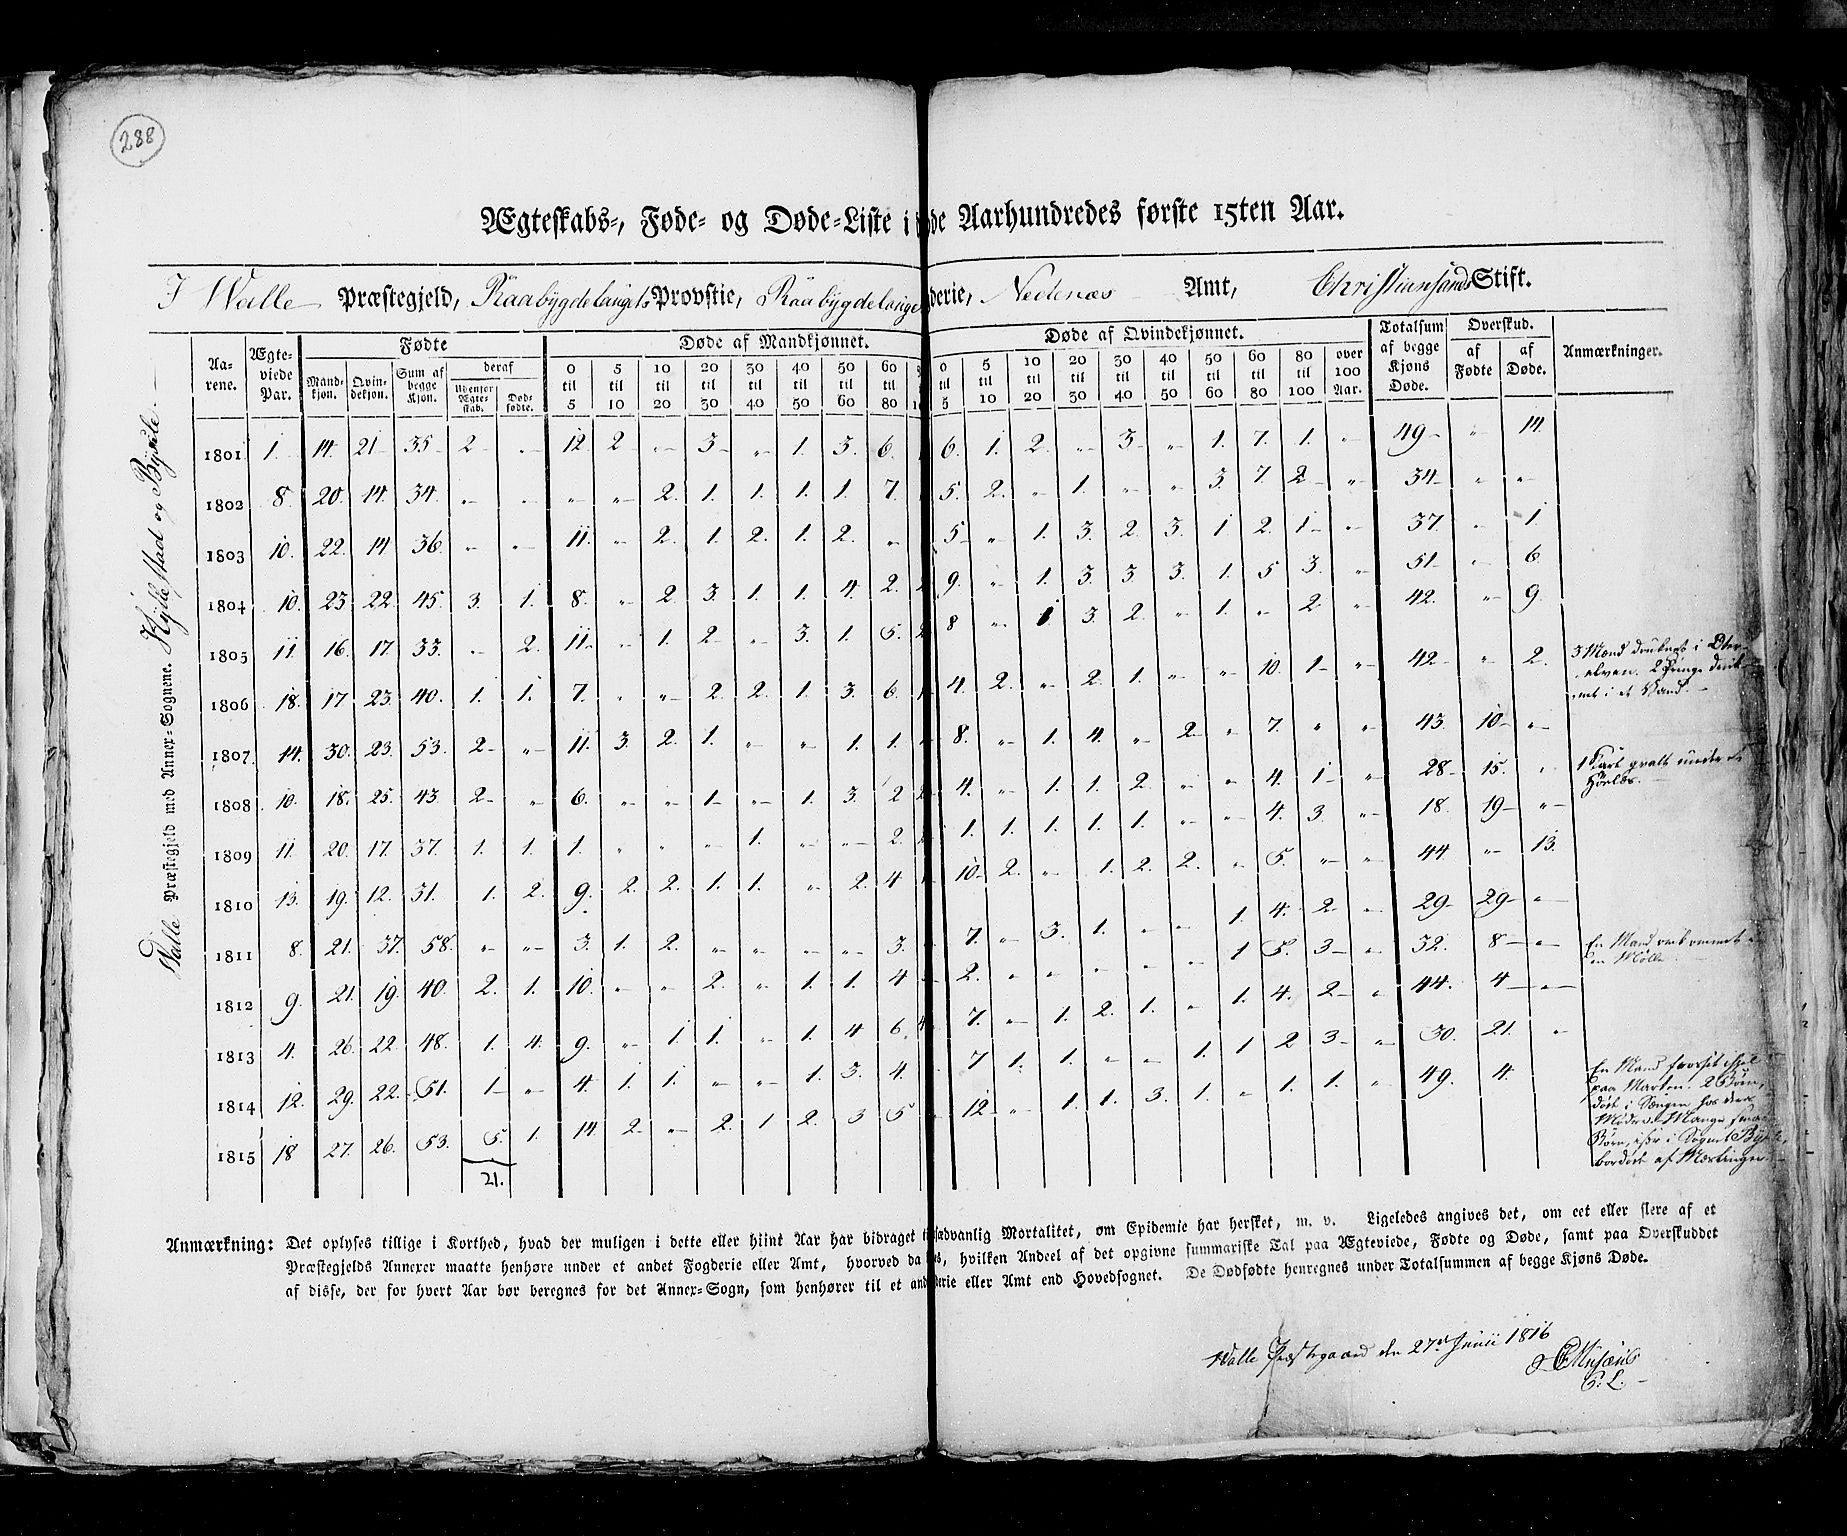 288
Ægteskabs-, Føde- og Døde-Liste i de Aarhundredes første 15ten Aar.
I Walle Præstegjeld, Raabygdelaugets Provstie, Raabygdelauge derie, Nedenæs Amt, Christiansands Stift.
Walle Præstegjeld med Annex-Sognene. Hyllestad og Bykle.
Aarene. Ægteviede Par. Fødte Døde af Mandkjønnet. Døde af Qvindekjønnet. Totalsum af begge Kjøns Døde. Overskud. Anmærkninger.
Mandkjøn. Qvindekjøn. Sum af begge Kjøn. deraf af Fødte af Døde.
Udenfor Ægteskab. Dødfødte.
0 til 5 5 til 10 10 til 20 20 til 30 30 til 40 40 til 50 50 til 60 60 til 80 0 til 5 5 til 10 10 til 20 20 til 30 30 til 40 40 til 50 50 til 60 60 til 80 80 til 100 over 100 Aar.
1801 1. 14. 21 35 2 „ 12. 2 „ 3 „ 1. 3. 6. 6. 1. 2. „ 3 „ 1. 7. 1. „ 49 „ 14.
1802 8. 20. 14. 34. „ „ „ „ 2. 1. 1. 1. 1. 7. 5. 2. „ 1. „ „ 3. 7. 2 „ 34 „ „
1803 10. 22. 14 36. „ „ 11. „ 2. 1. 2. 1. 2. „ 5 „ 1. 3. 2. 3. 1 2. 1 „ 37. „ 1.
1804 10. 23. 22. 45. 3. 1. 8. „ 2. 3. 1. 1. 4. 2. 9. „ 1. 3. 3. 3. 1. 5 3. „ 51. „ 6.
1805 11. 16. 17. 33. „ 2. 11. „ 1. 2 „ 3. 1. 5. 8 „ 1 3. 2. „ 1. „ 2. „ 42. „ 9.
1806 18. 17 23. 40. 1. 1. 7. „ „ 2. 2. 1. 3. 6. 4. 2. „ 2. 1. „ „ 10. 1 „ 42 „ 2. 3 Mænd druknet i Otterelven. 2
1807 14. 30. 23. 53. 2 „ 11. 3. 2. 1. „ „ 1. 1. 8. „ 1. 4. „ 2. „ 7. „ „ 43. 10 „
1808 10. 18. 25. 43. 2 „ 6. „ „ 1 „ 1. 3. 2 4. „ 1. 1. 2. „ „ 4. 1 „ 28 15. „
1809 11. 20. 17. 37. 1. 1. 1. „ „ „ 1. „ „ 2. 1. 1. 1. 1. 1. „ „ 4. 3. „ 18. 19 „
1810 13. 19. 12. 31. 1. 2. 9. 2. 2. 1. 1. „ 2. 4 10 2. „ 1. 2. 2. „ 5. „ „ 44. „ 13.
1811 8. 21. 37. 58. „ „ 3. 1. 2. „ „ „ „ 3. 7. „ 3. 1. „ „ 1. 4. 2 „ 29 29 „
1812 9. 21. 19. 40. 2. 1. 10. „ „ 2. „ 1. 1. 4 2. „ „ „ „ „ 1 5. 3 „ 32. 8 „ En Mand omkommet i en Mølle.
1813 4. 26. 22. 48. 1. 4. 9. „ 1 1. „ 1. 4 6. 7. „ 1. 2. 1. „ 1. 4. 2 „ 44. 4 „
1814 12. 29. 22. 51. 1 „ 4 1. 1. „ „ 1. 3. 4. 7 1. 1. „ „ 1. 1 2 3 „ 30. 21. „
1815 18 27. 26. 53. 5. 1. 14. 2. „ 2. 1 2. 3 5 12 „ 1. 1. 3. 1. „ 1. 1. „ 49. 4. En Mand
21.
paa 2 Børn,
døde i Sengen hos deres
Mødre. Mange smaa
Børn, især i Sognet Bykle,
bortdøde af Mæslinger.
Anmærkning: Det oplyses tillige i Korthed, hvad der muligen i dette eller hiint Aar har bidraget til sædvanlig Mortalitet, om Epidemie har hersket, m. v. Ligeledes angives det, om eet eller flere af et
Præstegjelds Annexer maatte henhøre under et andet Fogderie eller Amt, hvorved da s, hvilken Andeel af det opgivne summariske Tal paa Ægteviede, Fødte og Døde, samt paa Overskuddet
af disse, der for hvert Aar bør beregnes for det Annex-Sogn, som henhører til et and derie eller Amt end Hovedsognet. De Dødfødte henregnes under Totalsummen af begge Kjøns Døde.
Walle Præstegaard den 27de Junii 1816